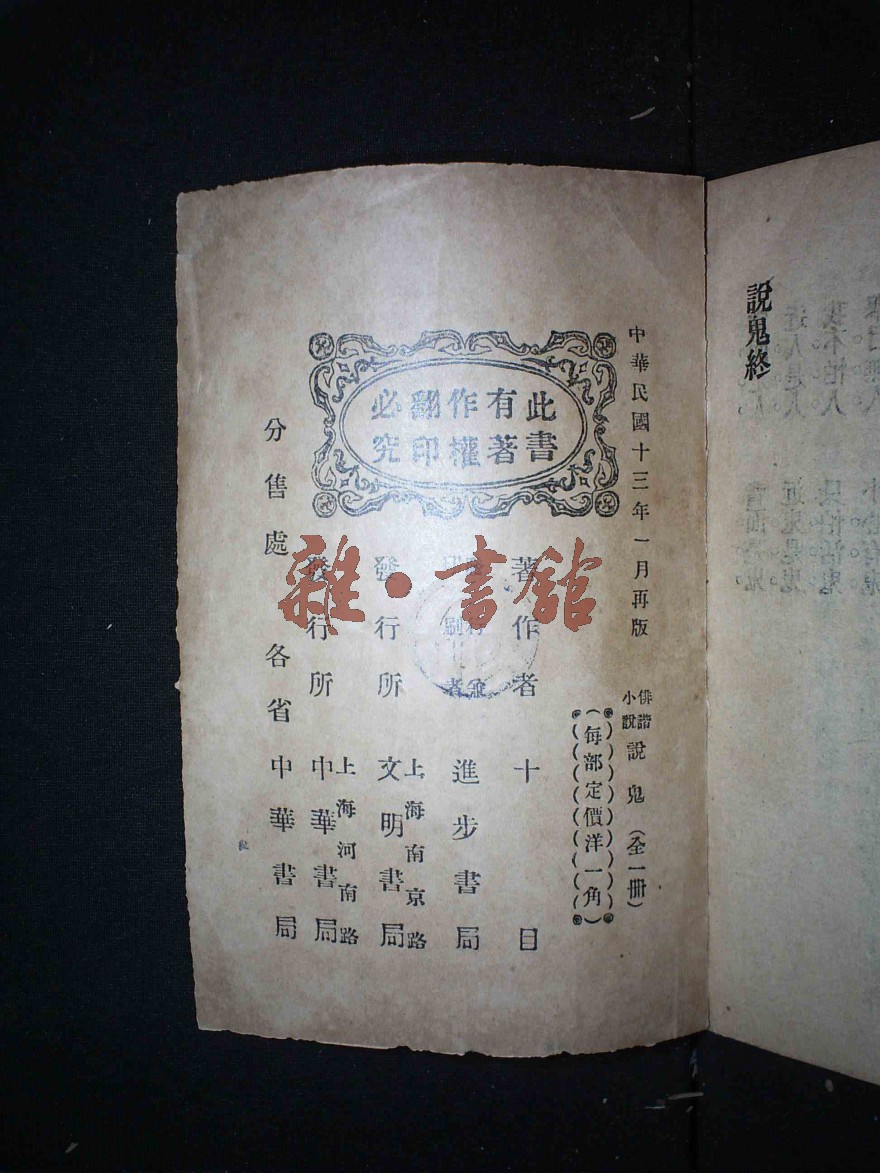 說鬼終
中華民國十三年一月再版
俳諧小說說鬼（全一冊）
（每部定價洋一角）
此書
有著
作權
翻印
必究
著作者 十目
印刷者 進步書局
發行所 上海南京路文明書局
發行所 上海河南路中華書局
分售處 各省中華書局
雜·書館